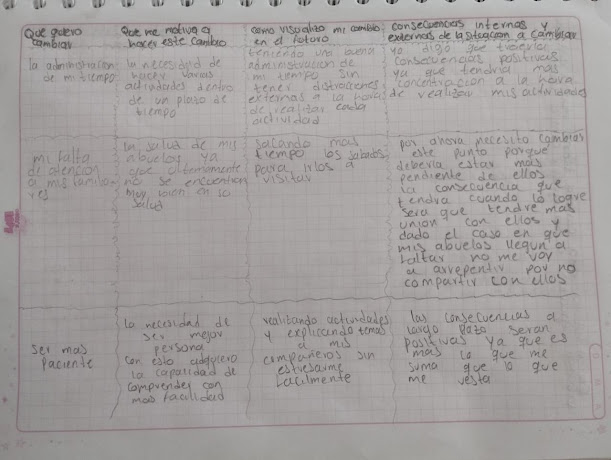 Que quiero
cambiar
Que me motiva a
hacer este Cambio
como visualizo mi cambio
en el futuro
consecuencias internas y
externas de la situacion a Cambiar
la administracion
de mi tiempo
la necesidad de
hacer varias
actividades dentro
de un plazo de
tiempo
teniendo una buena
administracion de
mi tiempo sin
tener distracciones
externas a la hora
de realizar cada
actividad
yo digo que traeria
consecuencias positivas
ya que tendria mas
concentracion a la hora
de realizar mis actividades
mi falta
de atencion
a mis familia
res
la salud de mis
abuelos ya
que ultimamente
no se encuentran
muy bien en su
salud
sacando mas
tiempo los sabados
para irlos a
visitar
por ahora necesito cambiar
este punto porque
deberia estar mas
pendiente de ellos
la consecuencia que
tendra cuando lo logre
sera que tendre mas
union con ellos y
dado el caso en que
mis abuelos llegun a
faltar no me voy
a arrepentir por no
compartir con ellos
Ser mas
Paciente
la necesidad de
ser mejor
persona
con esto adquiero
la capacidad de
comprender con
mas facilidad
realizando actividades
y explicando temas
a mis
compañeros sin
estresarme
facilmente
las consecuencias a
largo plazo seran
positivas ya que es
mas lo que me
suma que lo que
me resta